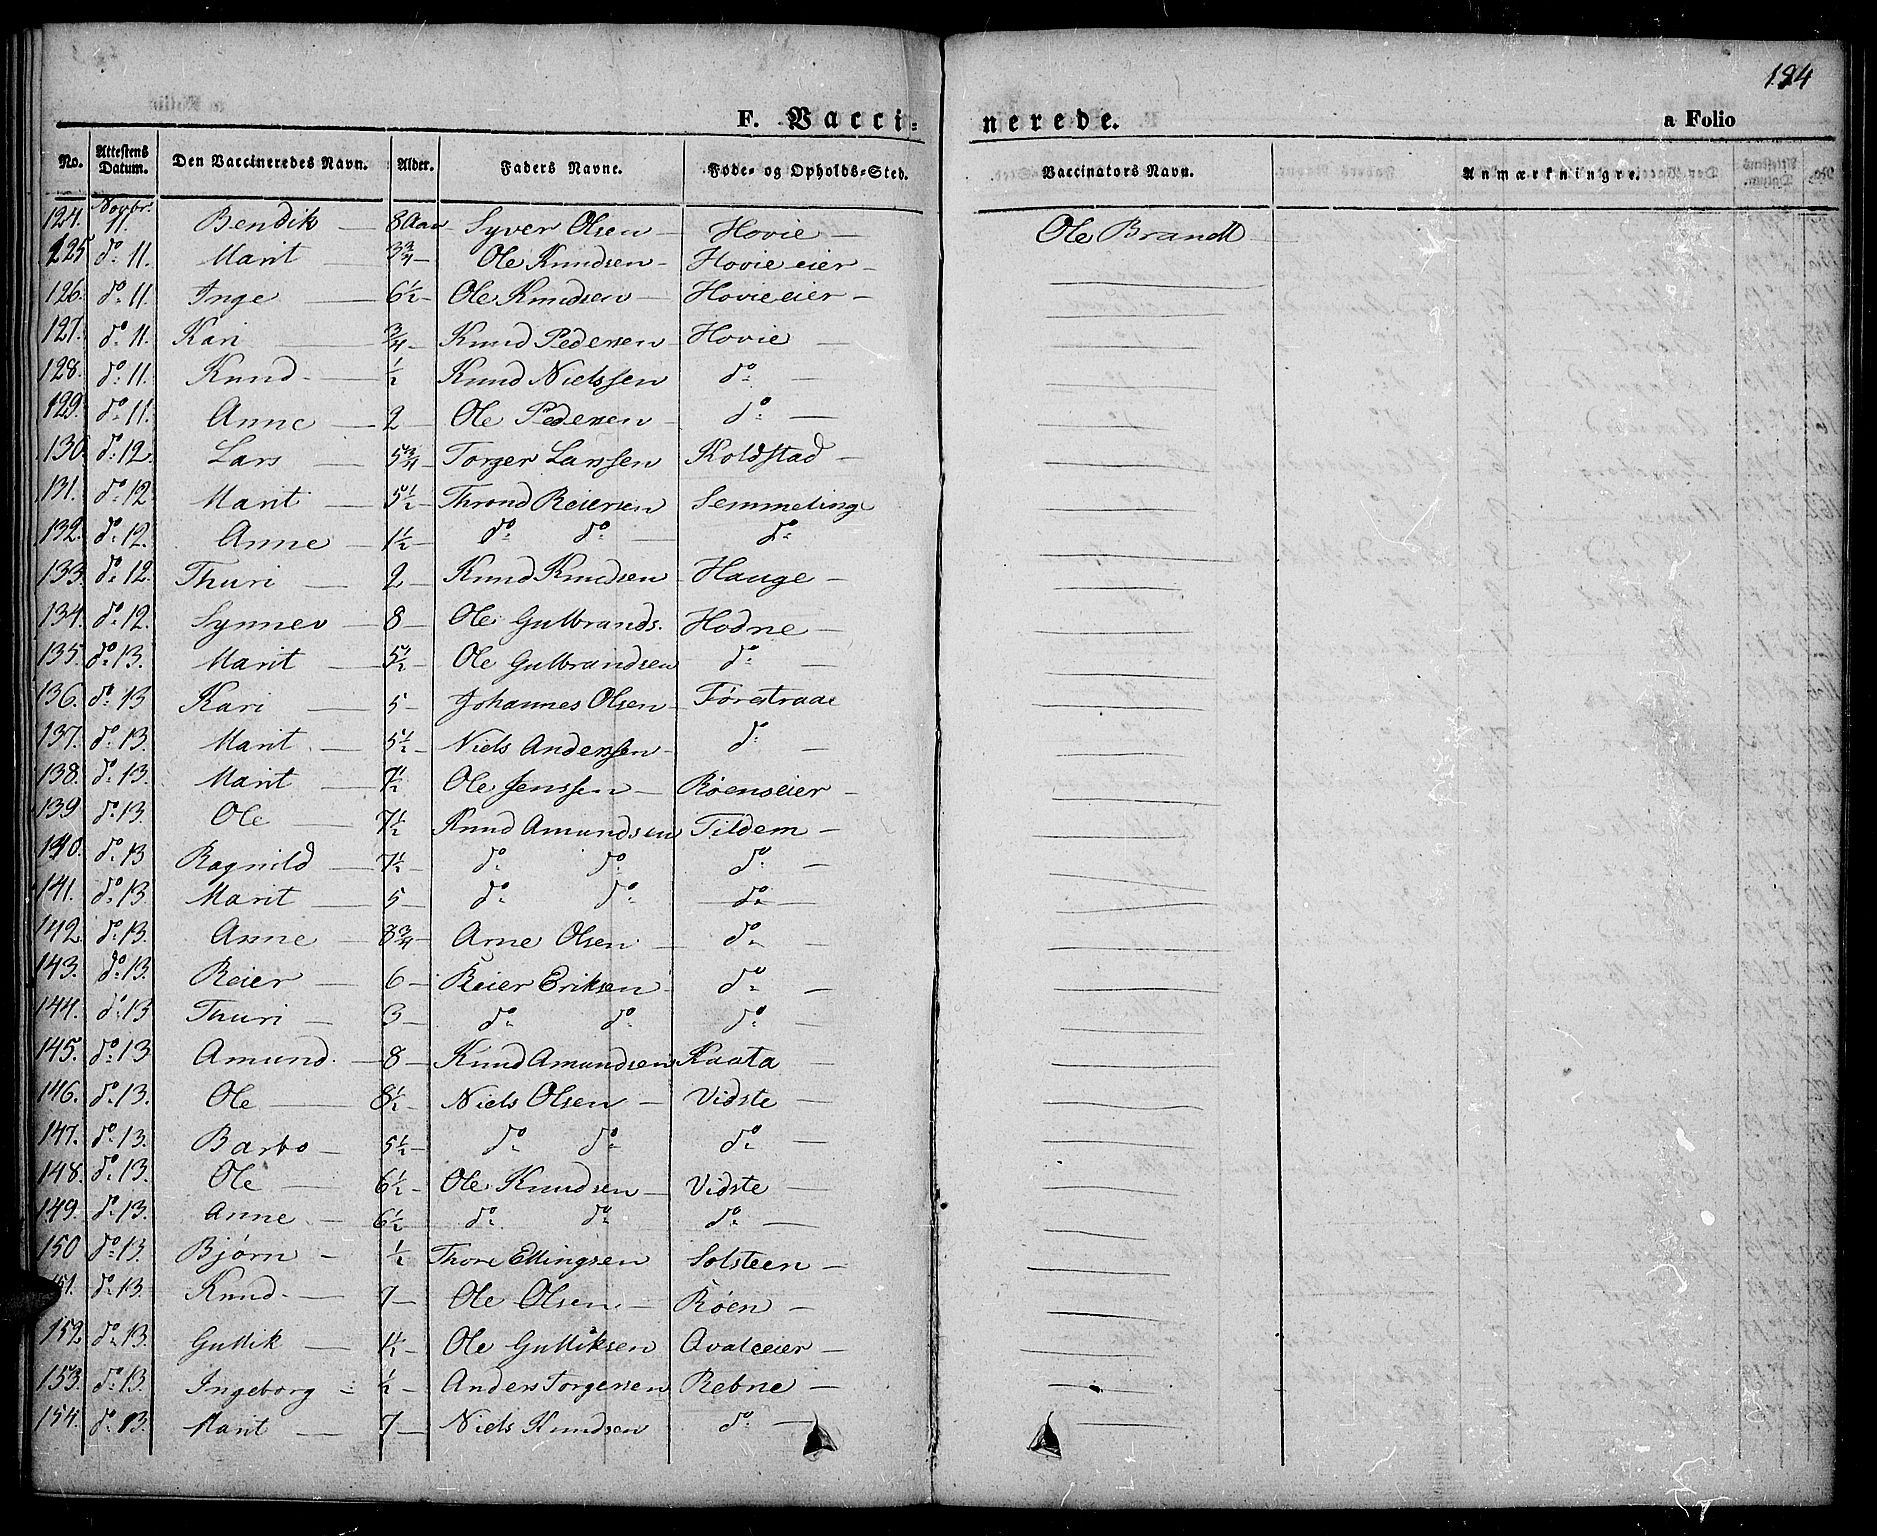 194
F. Vaccinerede. a Folio
No. Attestens Datum. Den Vaccineredes Navn. Alder. Faders Navne. Føde- og Opholds-Sted. Vaccinators Navn. Anmærkninger.
124. Novbr. 11. Bendik — 8 Aar Syver Olsen — Hovie — Ole Brandt
125 do 11. Marit — 3 3/4 — Ole Knudsen — Hovie eier —
126. do 11. Inge — 6 1/2 — Ole Knudsen — Hovie eier —
127. do 11. Kari — 3/4 — Knud Pedersen Hovie —
128. do 11. Knud — 1/2 Knud Nielssen do —
129. do 11. Anne — 2 — Ole Pedersen — do —
130. do 12. Lars — 5 3/4 — Torger Larssen Koldstad —
131. do 12 Marit — 5 1/2 — Thrond Reiersen Semmeling
132. do 12. Anne — 1 1/2 — do do — do
133. do 12. Thuri — 2 — Knud Knudsen Hauge —
134. do 12. Synnev — 8 — Ole Gulbrands. Hodne —
135. do 13. Marit — 5 1/2 — Ole Gulbrandsen do —
136. do 13 Kari — 5 — Johannes Olsen — Førestraae
137. do 13. Marit — 5 1/2 — Niels Anderssen — do —
138. do 13. Marit — 7 1/2 Ole Jenssen — Røenseier —
139 do 13. Ole — 7 1/2 Knud Amundsen Tildem —
140. do 13 Ragnild — 7 1/2 — do do do —
141. do 13. Marit — 5 — do do — do —
142. do 13. Anne — 8 3/4 — Arne Olsen — do —
143. do 13. Reier — 6 — Reier Eriksen — do —
144. do 13 Thuri — 3 — do do do —
145. do 13 Amund. — 8 — Knud Amundsen Kaata —
146. do 13. Ole — 8 1/2 — Niels Olsen — Vidste —
147. do 13. Barbo — 5 1/2 — do do do —
148. do 13. Ole — 6 1/2 — Ole Knudsen — Vidste —
149. do 13. Anne — 6 1/2 do do do —
150 do 13. Bjørn — 1/2 Thore Ellingsen Solsteen —
151. do 13. Knud. — 7 — Ole Olsen — Røen —
152. do 13. Gullik — Ole Gulliksen Qvaleeier —
153. do 13. Ingeborg — 1/2 — Anders Torgersen Rebne —
154. do 13. Marit — 7 — Niels Knudsen do —